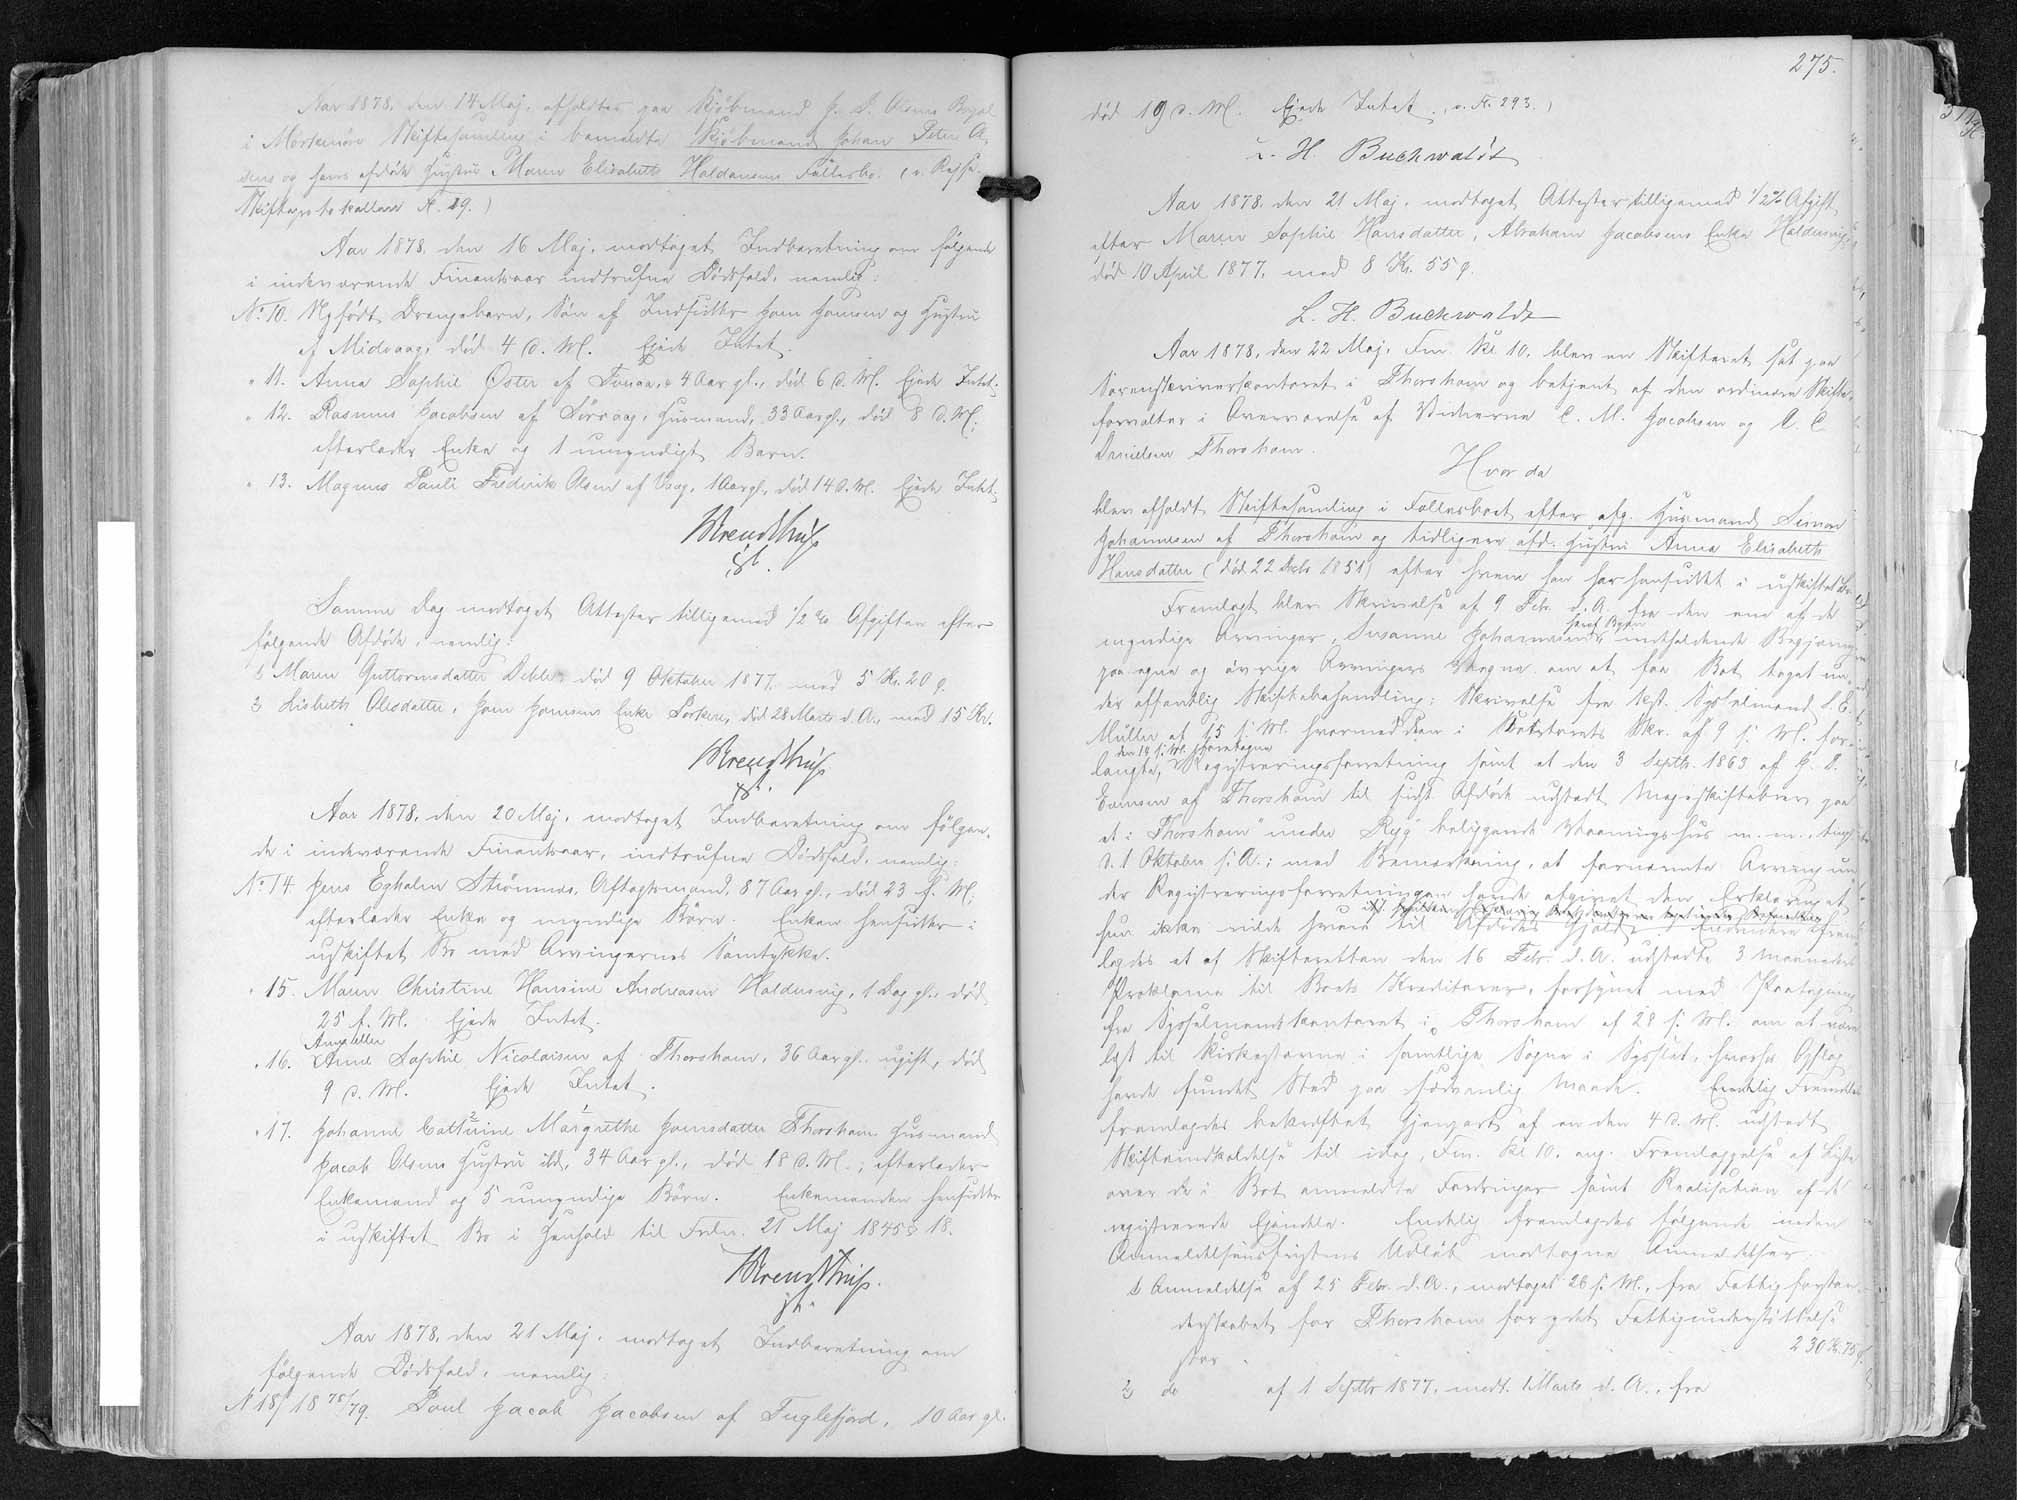 Aar 1878, den 14 Maj, afholdtes paa Kjöbmand J. P. Olsens Bopæl
i Mörkenöre Skiftesamling i bemeldte Kjöbmand Johan Peter Ol-
sens og hans afdöde Hustru Maren Elisabeth Haldansens Fællesbo. (v. Rejse-
Skifteprotokollen F. 29.)
Aar 1878, den 16 Maj, modtoges Indberetning om fölgende
i indeværende Finantsaar indtrufne Dödsfald, nemlig:
No 10. Nyfödt Drengebarn, Sön af Indsidder Joen Joensen og Hustru
af Midvaag, död 4 d. M. Ejede Intet.
" 11. Anna Sophie Öster af Tvaa, 4 Aar gl., död 6 d. M. Ejede Intet.
" 12. Rasmus Jacobsen af Sörvaag, Husmand, 33 Aar gl., död 8 d. M.;
efterlader Enke og 1 umyndigt Barn.
" 13. Magnus Pauli Frederik Olsen af Vaag, 1 Aar gl., död 14 d. M. Ejede Intet.
Samme Dag modtoges Attester tilligemed 1/2 % Afgiften efter
fölgende Afdöde, nemlig:
1) Maren Guttormsdatter Deble, död 9 Oktober 1877, med 5 Kr. 20 ø.
2) Lisbeth Olesdatter, Joen Joensens Enke Porkere, död 28 Marts d. A., med 15 Kr.
Aar 1878, den 20 Maj, modtoges Indberetning om fölgen-
de i indeværende Finantsaar, indtrufne Dödsfald, nemlig:
No 14. Jens Egholm Strömnæs, Aftægtsmand, 87 Aar gl., död 23 f. M.;
efterlader Enke og myndige Börn. Enken hensidder i
uskiftet Bo med Arvingernes Samtykke.
" 15. Maren Christine Hansine Andreasen Haldersvig, 1 Dag gl., död
25 f. M. Ejede Intet.
Anna eller
" 16. Anne Sophie Nicolaisen af Thorshavn, 36 Aar gl., ugift, död
9 d. M. Ejede Intet.
" 17. Johanne Cathrine Margrethe Joensdatter Thorshavn, Husmand
Jacob Olsens Hustru ibd., 34 Aar gl., död 18 d. M.; efterlader
Enkemand og 5 umyndige Börn. Enkemanden hensidder
i uskiftet Bo i Henhold til Frdn. 21 Maj 1845 § 18.
Aar 1878, den 21 Maj, modtoges Indberetning om
fölgende Dödsfald, nemlig:
N 18/ 18 78/79. Poul Jacob Jacobsen af Fuglefjord, 10 Aar gl.
275.
död 19 d. M. Ejede Intet. (v. F. 293.)
L. H. Buchwaldt
Aar 1878, den 21 Maj, modtoges Attester tilligemed 1/2 % Afgift
efter Maren Sophie Hansdatter, Abraham Jacobsens Enke Haldersvig,
död 10 April 1877, med 8 Kr. 55 ø.
L. H. Buchwaldt
Aar 1878, den 22 Maj, Fm. Kl 10, blev en Skifteret sat paa
Sorenskriverkontoret i Thorshavn og betjent af den ordinære Skifte-
forvalter i Overværelse af Vidnerne C. M. Jacobsen og A. C.
Danielsen Thorshavn.
Hvor da
blev afholdt Skiftesamling i Fællesboet efter afg. Husmand Simon
Johannesen af Thorshavn og tidligere afd. Hustru Anna Elisabeth
Hansdatter (död 22 Decbr 1851) efter hvem han har hensiddet i uskiftet Bo.
Fremlagt blev Skrivelse af 9 Febr. d. A. fra den ene af de
myndige Arvinger, Susanne Johannesen, indeholdende Begjæring
paa egne og övrige Arvingers Vegne om at faa Boet taget un-
der offentlig Skiftebehandling; Skrivelse fra Kst. Sysselmand S. E.
Müller af 15 s. M. hvormed den i Skifterettens Skr. af 9 s. M. for-
den 14 s. M. foretagne
langte, Registreringsforretning samt et den 3 Septbr. 1863 af J. D.
Ennsen af Thorshavn til sidst Afdöde udstedt Mageskiftebrev paa
et i Thorshavn "under Ryg" beliggende Vaaningshus m. m., tingl.
d. 1 Oktober s. A.; med Bemærkning, at fornævnte Arving un-
der Registreringsforretningen havde afgivet den Erklæring at
hun ikke vilde svare til Afdödes Gjæld. Endvidere frem-
lagdes et af Skifteretten den 16 Febr. d. A. udstedte 3 Maaneders
Proklama til Boets Kreditorer, forsynet med Paategning
fra Sysselmandskontoret i Thorshavn af 28 s. M. om at være
læst til Kirkestævne i samtlige Sogne i Sysslet, hvorhos Opslag
havde fundet Sted paa sædvanlig Maade. Endelig
fremlagdes bekræftet Gjenpart af en den 4 d. M. udstedt
Skifteindkaldelse til idag, Fm. Kl 10, ang. Fremlæggelse af Liste
over de i Boet anmeldte Fordringer samt Realisation af de
registrerede Ejendele. Endelig fremlagdes fölgende inden
Anmeldelsesfristens Udlöb modtagne Anmeldelser:
1) Anmeldelse af 25 Febr. d. A., modtaget 26 s. M., fra Fattigforstan-
derskabet for Thorshavn for ydet Fattigunderstöttelse
stor . . . . 230 Kr. 75 ø.
2) do af 1 Septbr 1877, modt. 1 Marts d. A., fra